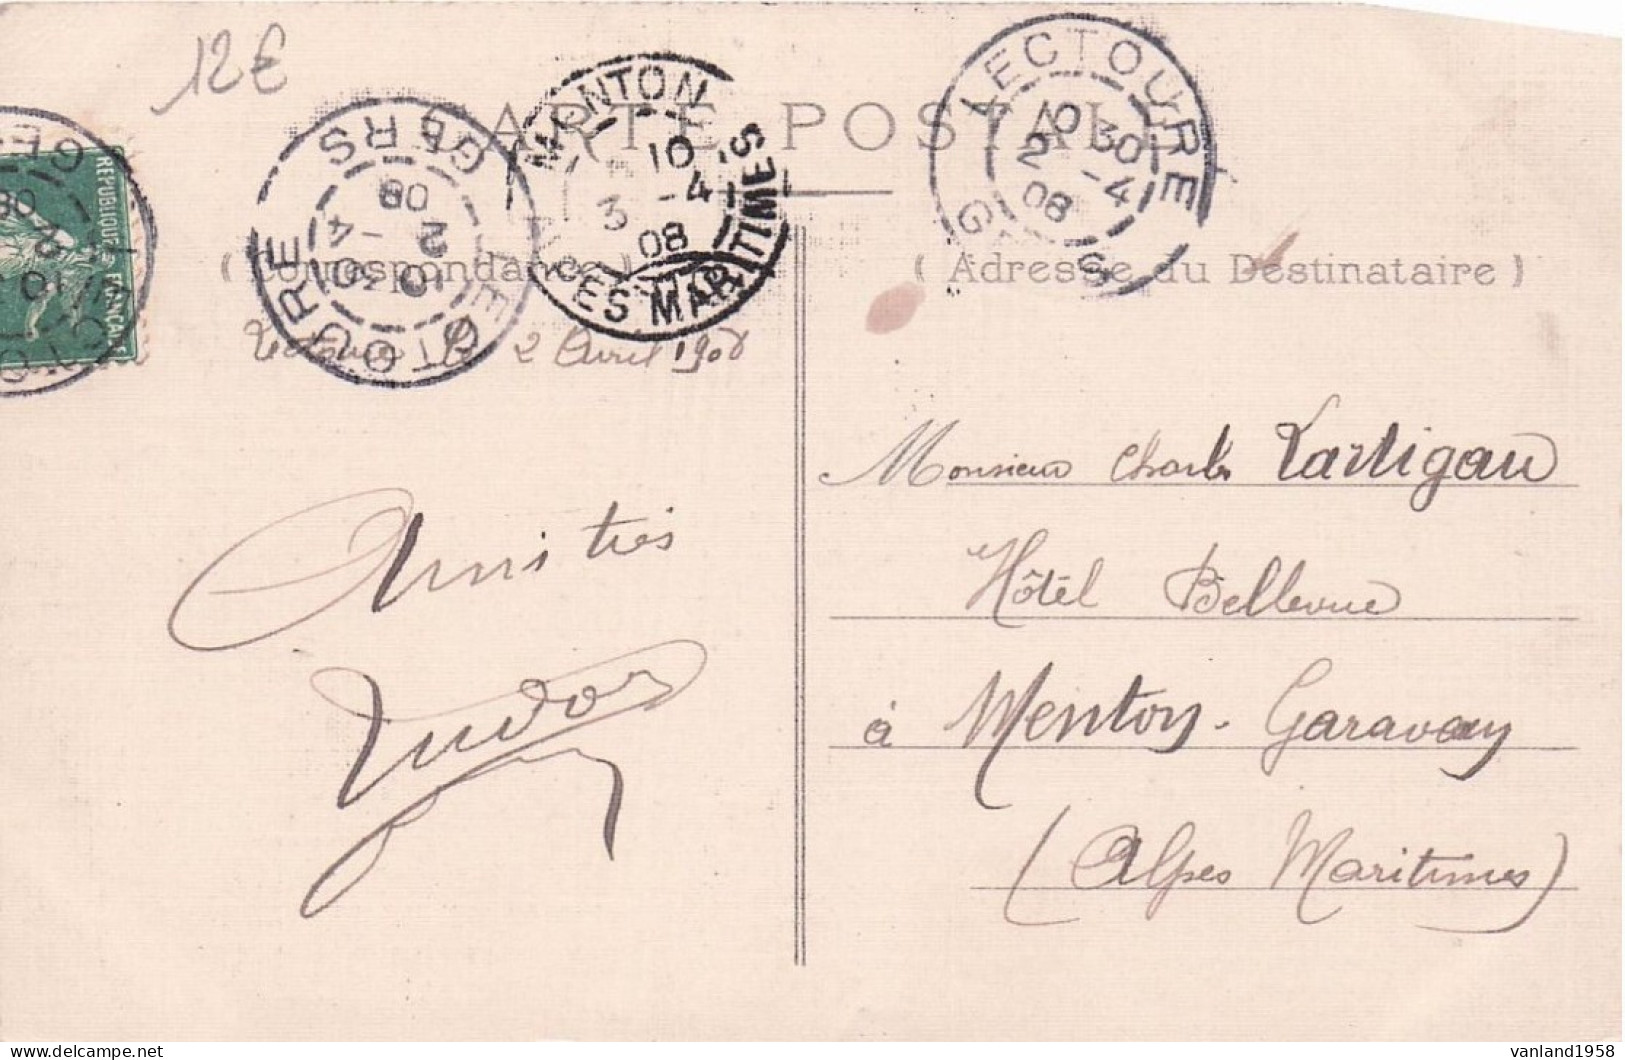 12€
CARTE POSTALE
LECTOURE
GERS
10 30
2 -4
08
MENTON
ALPES MARITIMES
10
3 -4
08
LECTOURE
GERS
10 30
2 -4
08
REPUBLIQUE FRANÇAISE
( Correspondance )
( Adresse du Destinataire )
Lectoure le 2 Avril 1908
Amitiés
Monsieur Charles Lartigau
Hôtel Bellevue
à Menton-Garavan
(Alpes Maritimes)
vanland1958